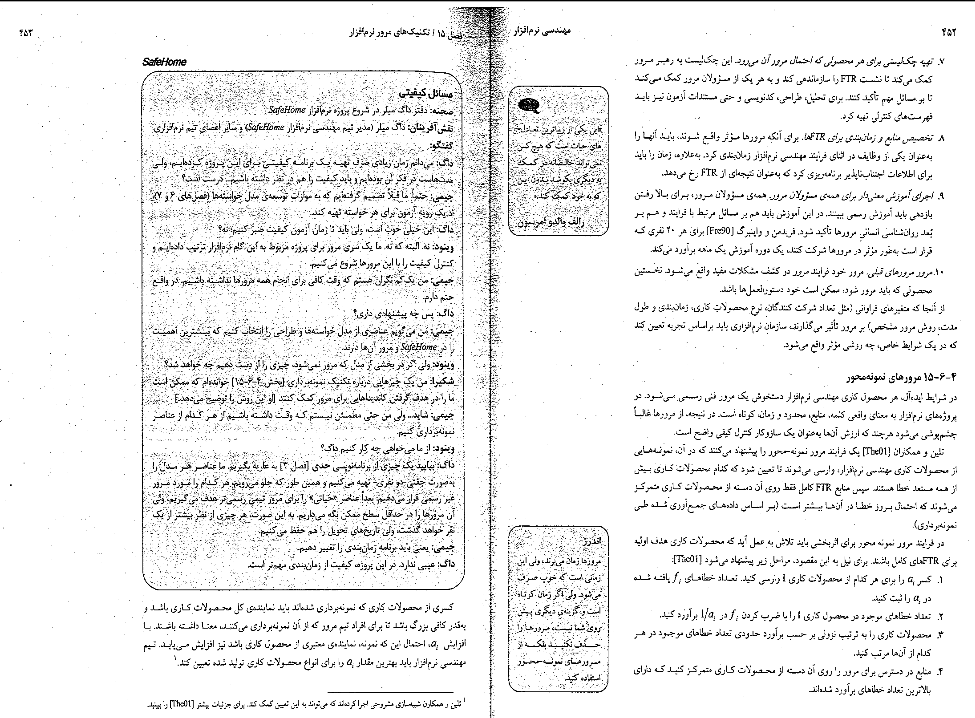 ۴۵۲
مهندسی نرم‌افزار
۷. تهیه چک‌لیستی برای هر محصولی که احتمال مرور آن می‌رود. این چک‌لیست به رهبر مرور
کمک می‌کند تا نشست FTR را سازماندهی کند و به هر یک از مسؤولان مرور کمک می‌کند
تا بر مسائل مهم تأکید کنند. برای تحلیل، طراحی، کدنویسی و حتی مستندات آزمون نیز باید
فهرست‌های کنترلی تهیه کرد.
۸. تخصیص منابع و زمان‌بندی برای FTRها. برای آنکه مرورها مؤثر واقع شوند، باید آنها را
به‌عنوان یکی از وظایف در اثنای فرایند مهندسی نرم‌افزار زمان‌بندی کرد. به‌علاوه، زمان را باید
برای اطلاعات اجتناب‌ناپذیر برنامه‌ریزی کرد که به‌عنوان نتیجه‌ای از FTR رخ می‌دهد.
۹. اجرای آموزش معنی‌دار برای همه‌ی مسؤولان مرور. همه‌ی مسؤولان مرور، برای بالا رفتن
بازدهی باید آموزش رسمی ببینند. در این آموزش باید هم بر مسائل مرتبط با فرایند و هم بر
بُعد روان‌شناسی انسانی مرورها تأکید شود. فریدمن و واینبرگ [Fre90] برای هر ۲۰ نفری که
قرار است به‌طور مؤثر در مرورها شرکت کنند، یک دوره آموزش یک ماهه برآورد می‌کند.
۱۰. مرور مرورهای قبلی. مرور خود فرایند مرور در کشف مشکلات مفید واقع می‌شود. نخستین
محصولی که باید مرور شود، ممکن است خود دستورالعمل‌ها باشد.
از آنجا که متغیرهای فراوانی (مثل تعداد شرکت کنندگان، نوع محصولات کاری، زمان‌بندی و طول
مدت، روش مرور مشخص) بر مرور تأثیر می‌گذارند، سازمان نرم‌افزاری باید براساس تجربه تعیین کند
که در یک شرایط خاص، چه روشی مؤثر واقع می‌شود.
۴-۶-۱۵ مرورهای نمونه‌محور
در شرایط ایده‌آل، هر محصول کاری مهندسی نرم‌افزار دستخوش یک مرور فنی رسمی می‌شود. در
پروژه‌های نرم‌افزار به معنای واقعی کلمه، منابع، محدود و زمان کوتاه است. در نتیجه، از مرورها غالباً
چشم‌پوشی می‌شود هرچند که ارزش آن‌ها به‌عنوان یک سازوکار کنترل کیفی واضح است.
تلین و همکاران [The01] یک فرایند مرور نمونه-محور را پیشنهاد می‌کنند که در آن، نمونه‌هایی
از محصولات کاری مهندسی نرم‌افزار، وارسی می‌شوند تا تعیین شود که کدام محصولات کاری بیش
از همه مستعد خطا هستند. سپس منابع FTR کامل فقط روی آن دسته از محصولات کاری متمرکز
می‌شوند که احتمال بروز خطا در آن‌ها بیشتر است (بر اساس داده‌های جمع‌آوری شده طی
نمونه‌برداری).
در فرایند مرور نمونه محور برای اثربخشی باید تلاش به عمل آید که محصولات کاری هدف اولیه
برای FTRهای کامل باشند. برای نیل به این مقصود، مراحل زیر پیشنهاد می‌شود [The01]:
۱. کسر aᵢ را برای هر کدام از محصولات کاری i وارسی کنید. تعداد خطاهای fᵢ یافته شده
در aᵢ را ثبت کنید.
۲. تعداد خطاهای موجود در محصول کاری i را با ضرب کردن fᵢ در 1/aᵢ برآورد کنید.
۳. محصولات کاری را به ترتیب نزولی بر حسب برآورد حدودی تعداد خطاهای موجود در هر
کدام از آن‌ها مرتب کنید.
۴. منابع در دسترس برای مرور را روی آن دسته از محصولات کاری متمرکز کنید که دارای
بالاترین تعداد خطاهای برآورد شده‌اند.
رالف والدو امرسون
اندرز
مرورها زمان می‌برند، ولی این
زمانی است که خوب صرف
می‌شود. ولی اگر زمان کوتاه
است و گزینه‌ی دیگری پیش
روی شما نیست، مرورها را
حذف نکنید بلکه از
مرورهای نمونه-محور
استفاده کنید.
فصل ۱۵ / تکنیک‌های مرور نرم‌افزار
۴۵۳
SafeHome
مسائل کیفیتی
صحنه: دفتر داگ میلر در شروع پروژه نرم‌افزار SafeHome
نقش‌آفرینان: داگ میلر (مدیر تیم مهندسی نرم‌افزار SafeHome) و سایر اعضای تیم نرم‌افزاری
گفتگو:
داگ: می‌دانم زمان زیادی صرف تهیه یک برنامه کیفیتی برای این پروژه نکرده‌ایم، ولی
در فکر آن بوده‌ایم و باید کیفیت را هم در نظر داشته باشیم... درست است؟
جیمی: حتماً. ما قبلاً تصمیم گرفته‌ایم که به موازات توسعه‌ی مدل خواسته‌ها (فصل‌های ۶ و ۷)،
یک رویه آزمون برای هر خواسته تهیه کند.
داگ: این خیلی خوب است، ولی باید تا زمان آزمون کیفیت صبر کنیم، نه؟
وینود: نه. البته که نه. ما یک سری مرور برای پروژه مربوط به این گام نرم‌افزار ترتیب داده‌ایم و
کنترل کیفیت را با این مرورها شروع می‌کنیم.
جیمی: من یک کم نگران هستم که وقت کافی برای انجام همه مرورها نداشته باشیم. در واقع
حتم دارم.
داگ: پس چه پیشنهادی داری؟
جیمی: من می‌گویم عناصری از مدل خواسته‌ها و طراحی را انتخاب کنیم که بیشترین اهمیت
را در SafeHome و مرور آن‌ها دارند.
وینود: ولی اگر در بخشی از مدل که مرور نمی‌شود، چیزی را از دست دهیم چه خواهد شد؟
شکیرا: من یک چیزهایی درباره تکنیک نمونه‌برداری [بخش ۴-۶-۱۵] خوانده‌ام که ممکن است
ما را در هدف گرفتن کاندیداهایی برای مرور کمک کنند. [او این روش را توضیح می‌دهد.]
جیمی: شاید... ولی من حتی مطمئن نیستم که وقت داشته باشیم از هر کدام از عناصر
نمونه‌برداری کنیم.
وینود: از ما می‌خواهی چه کار کنیم داگ؟
داگ: بیایید یک چیزی از برنامه‌نویسی حدی [فصل ۳] به عاریه بگیریم. ما عناصر هر مدل را
به صورت جفتی-دو نفری- تهیه می‌کنیم و همین طور که جلو می‌رویم، هر کدام را مورد مرور
غیر رسمی قرار می‌دهیم. بعداً عناصر «حیاتی» را برای مرور تیمی رسمی‌تر هدف می‌گیریم، ولی
آن مرورها را در حداقل سطح ممکن نگه می‌داریم. به این صورت، هر چیزی از نظر بیشتر از یک
نفر خواهد گذشت، ولی تاریخ‌های تحویل را هم حفظ می‌کنیم.
جیمی: یعنی باید برنامه زمان‌بندی را تغییر دهیم.
داگ: عیبی ندارد. در این پروژه، کیفیت از زمان‌بندی مهم‌تر است.
کسری از محصولات کاری که نمونه‌برداری شده‌اند باید نماینده‌ی کل محصولات کاری باشد و
به‌قدر کافی بزرگ باشد تا برای افراد تیم مرور که از آن نمونه‌برداری می‌کنند، معنا داشته باشند. با
افزایش aᵢ، احتمال این که نمونه، نماینده‌ی معتبری از محصول کاری باشد نیز افزایش می‌یابد. تیم
مهندسی نرم‌افزار باید بهترین مقدار aᵢ را برای انواع محصولات کاری تولید شده تعیین کند.¹
¹ تلین و همکاران شبیه‌سازی مشروحی اجرا کرده‌اند که می‌تواند به این تعیین کمک کند. برای جزئیات بیشتر [The01] را ببینید.